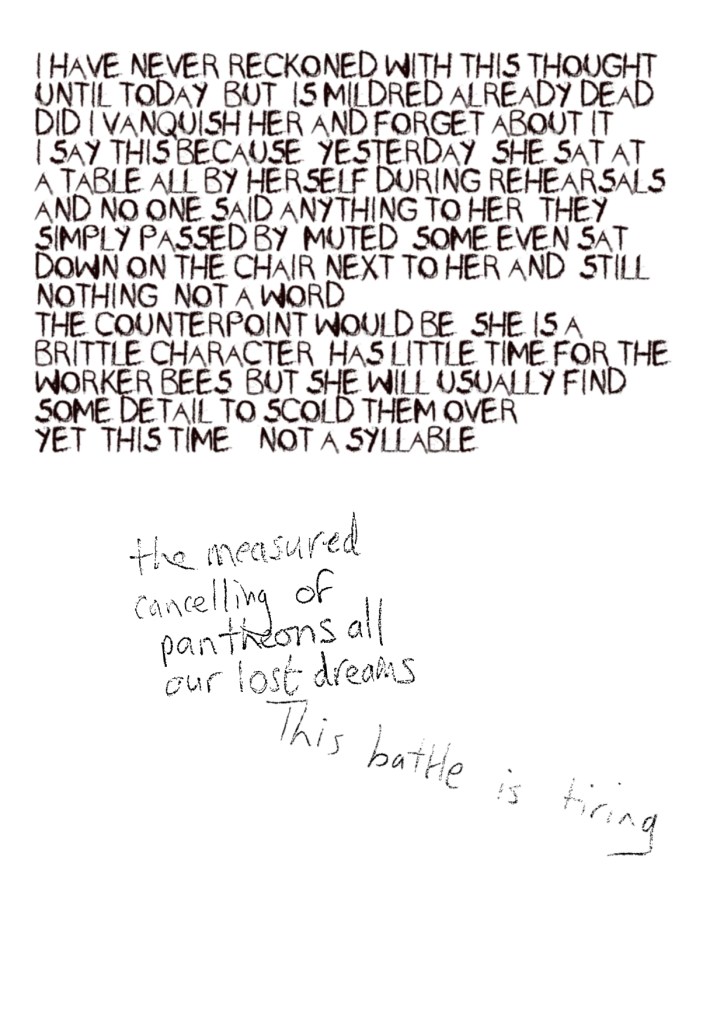 I HAVE NEVER RECKONED WITH THIS THOUGHT
UNTIL TODAY BUT IS MILDRED ALREADY DEAD
DID I VANQUISH HER AND FORGET ABOUT IT
I SAY THIS BECAUSE YESTERDAY SHE SAT AT
A TABLE ALL BY HERSELF DURING REHEARSALS
AND NO ONE SAID ANYTHING TO HER THEY
SIMPLY PASSED BY MUTED SOME EVEN SAT
DOWN ON THE CHAIR NEXT TO HER AND STILL
NOTHING NOT A WORD
THE COUNTERPOINT WOULD BE SHE IS A
BRITTLE CHARACTER HAS LITTLE TIME FOR THE
WORKER BEES BUT SHE WILL USUALLY FIND
SOME DETAIL TO SCOLD THEM OVER
YET THIS TIME NOT A SYLLABLE
the measured
cancelling of
pantheons all
our lost dreams
This battle is tiring